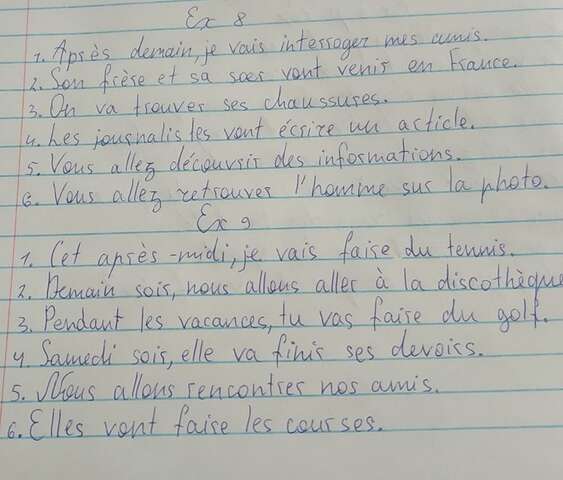 Ex 8
1. Après demain, je vais interroger mes amis.
2. Son frère et sa sœr vont venir en France.
3. On va trouver ses chaussures.
4. Les journalistes vont écrire un article.
5. Vous allez découvrir des informations.
6. Vous allez retrouver l'homme sur la photo.
Ex 9
1. Cet après-midi, je vais faire du tennis.
2. Demain soir, nous allons aller à la discothèque
3. Pendant les vacances, tu vas faire du golf.
4. Samedi soir, elle va finir ses devoirs.
5. Nous allons rencontrer nos amis.
6. Elles vont faire les courses.